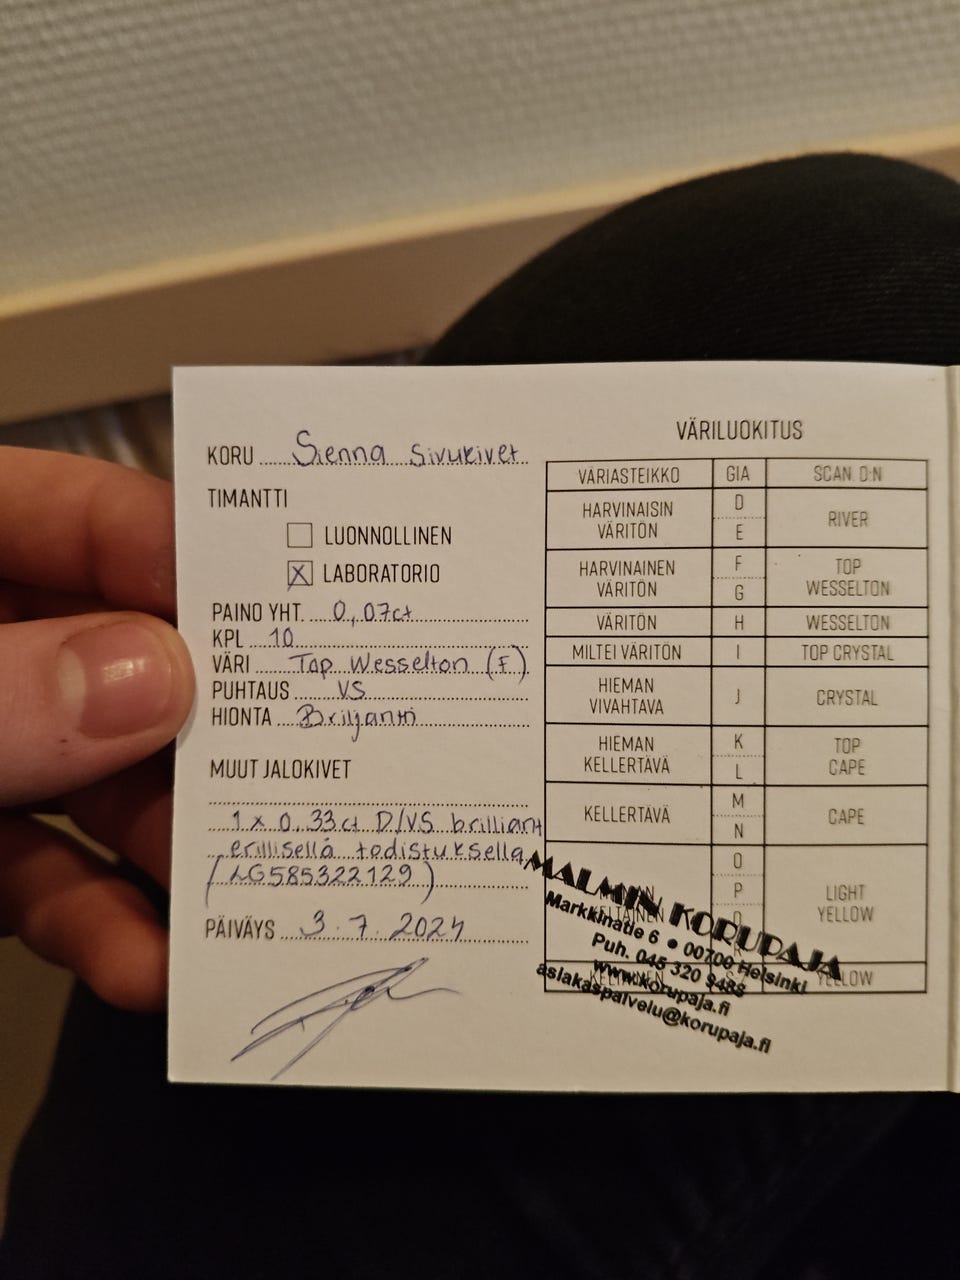 KORU Sienna Sivukivet
TIMANTTI
LUONNOLLINEN
X LABORATORIO
PAINO YHT. 0,07ct
KPL 10
VÄRI Top Wesselton (F)
PUHTAUS VS
HIONTA Briljantti
MUUT JALOKIVET
1 x 0,33ct D/VS brilliant
erillisellä todistuksella
(LG585322129)
PÄIVÄYS 3.7.2024
VÄRILUOKITUS
VÄRIASTEIKKO GIA SCAN. D.N
HARVINAISIN VÄRITÖN D E RIVER
HARVINAINEN VÄRITÖN F G TOP WESSELTON
VÄRITÖN H WESSELTON
MILTEI VÄRITÖN I TOP CRYSTAL
HIEMAN VIVAHTAVA J CRYSTAL
HIEMAN KELLERTÄVÄ K L TOP CAPE
KELLERTÄVÄ M N CAPE
O P LIGHT YELLOW
YELLOW
MALMIN KORUPAJA
Markkinatie 6 • 00700 Helsinki
Puh. 045 320 9488
www.korupaja.fi
asiakaspalvelu@korupaja.fi